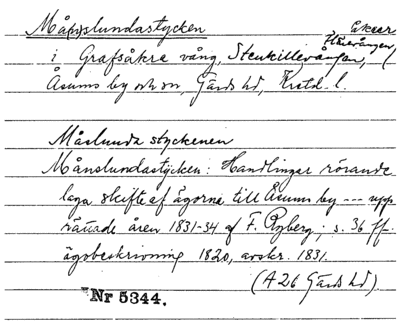 Må(n)slundastycken åkrar
i Grafsåkra vång, Stenkillevången,
Åsums by och sn, Gärds hd, Krstd. l.
Måslunda styckenen
Månslundastycken: Handlingar rörande
laga skifte af ägorna till Åsums by --- upp
rättade åren 1831-34 af F. Ryberg; s. 36 ff.
ägobeskrivning 1820, avskr. 1831.
(A 26 Gärds hd).
Nr 5344.